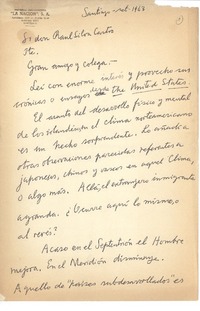 "LA NACION", S. A.
Santiago - oct. 1963
Sr don Raúl Silva Castro
Pte.
Gran amigo y colega:
Leí con enorme interés y provecho sus
crónicas o ensayos desde the United States.
El asunto del desarrollo físico y mental
de los islandeses en el clima norteamericano
es un hecho sorprendente. Yo añadiría
otras observaciones parecidas referentes en
japoneses, chinos y rusos en aquel clima,
o algo más. Allá, el extranjero inmigrante
agranda. ¿Ocurre aquí lo mismo, o
al revés?
Acaso en el Septentrión el Hombre
mejora. En el Meridión disminuye.
Aquello de "países subdesarrollados" es